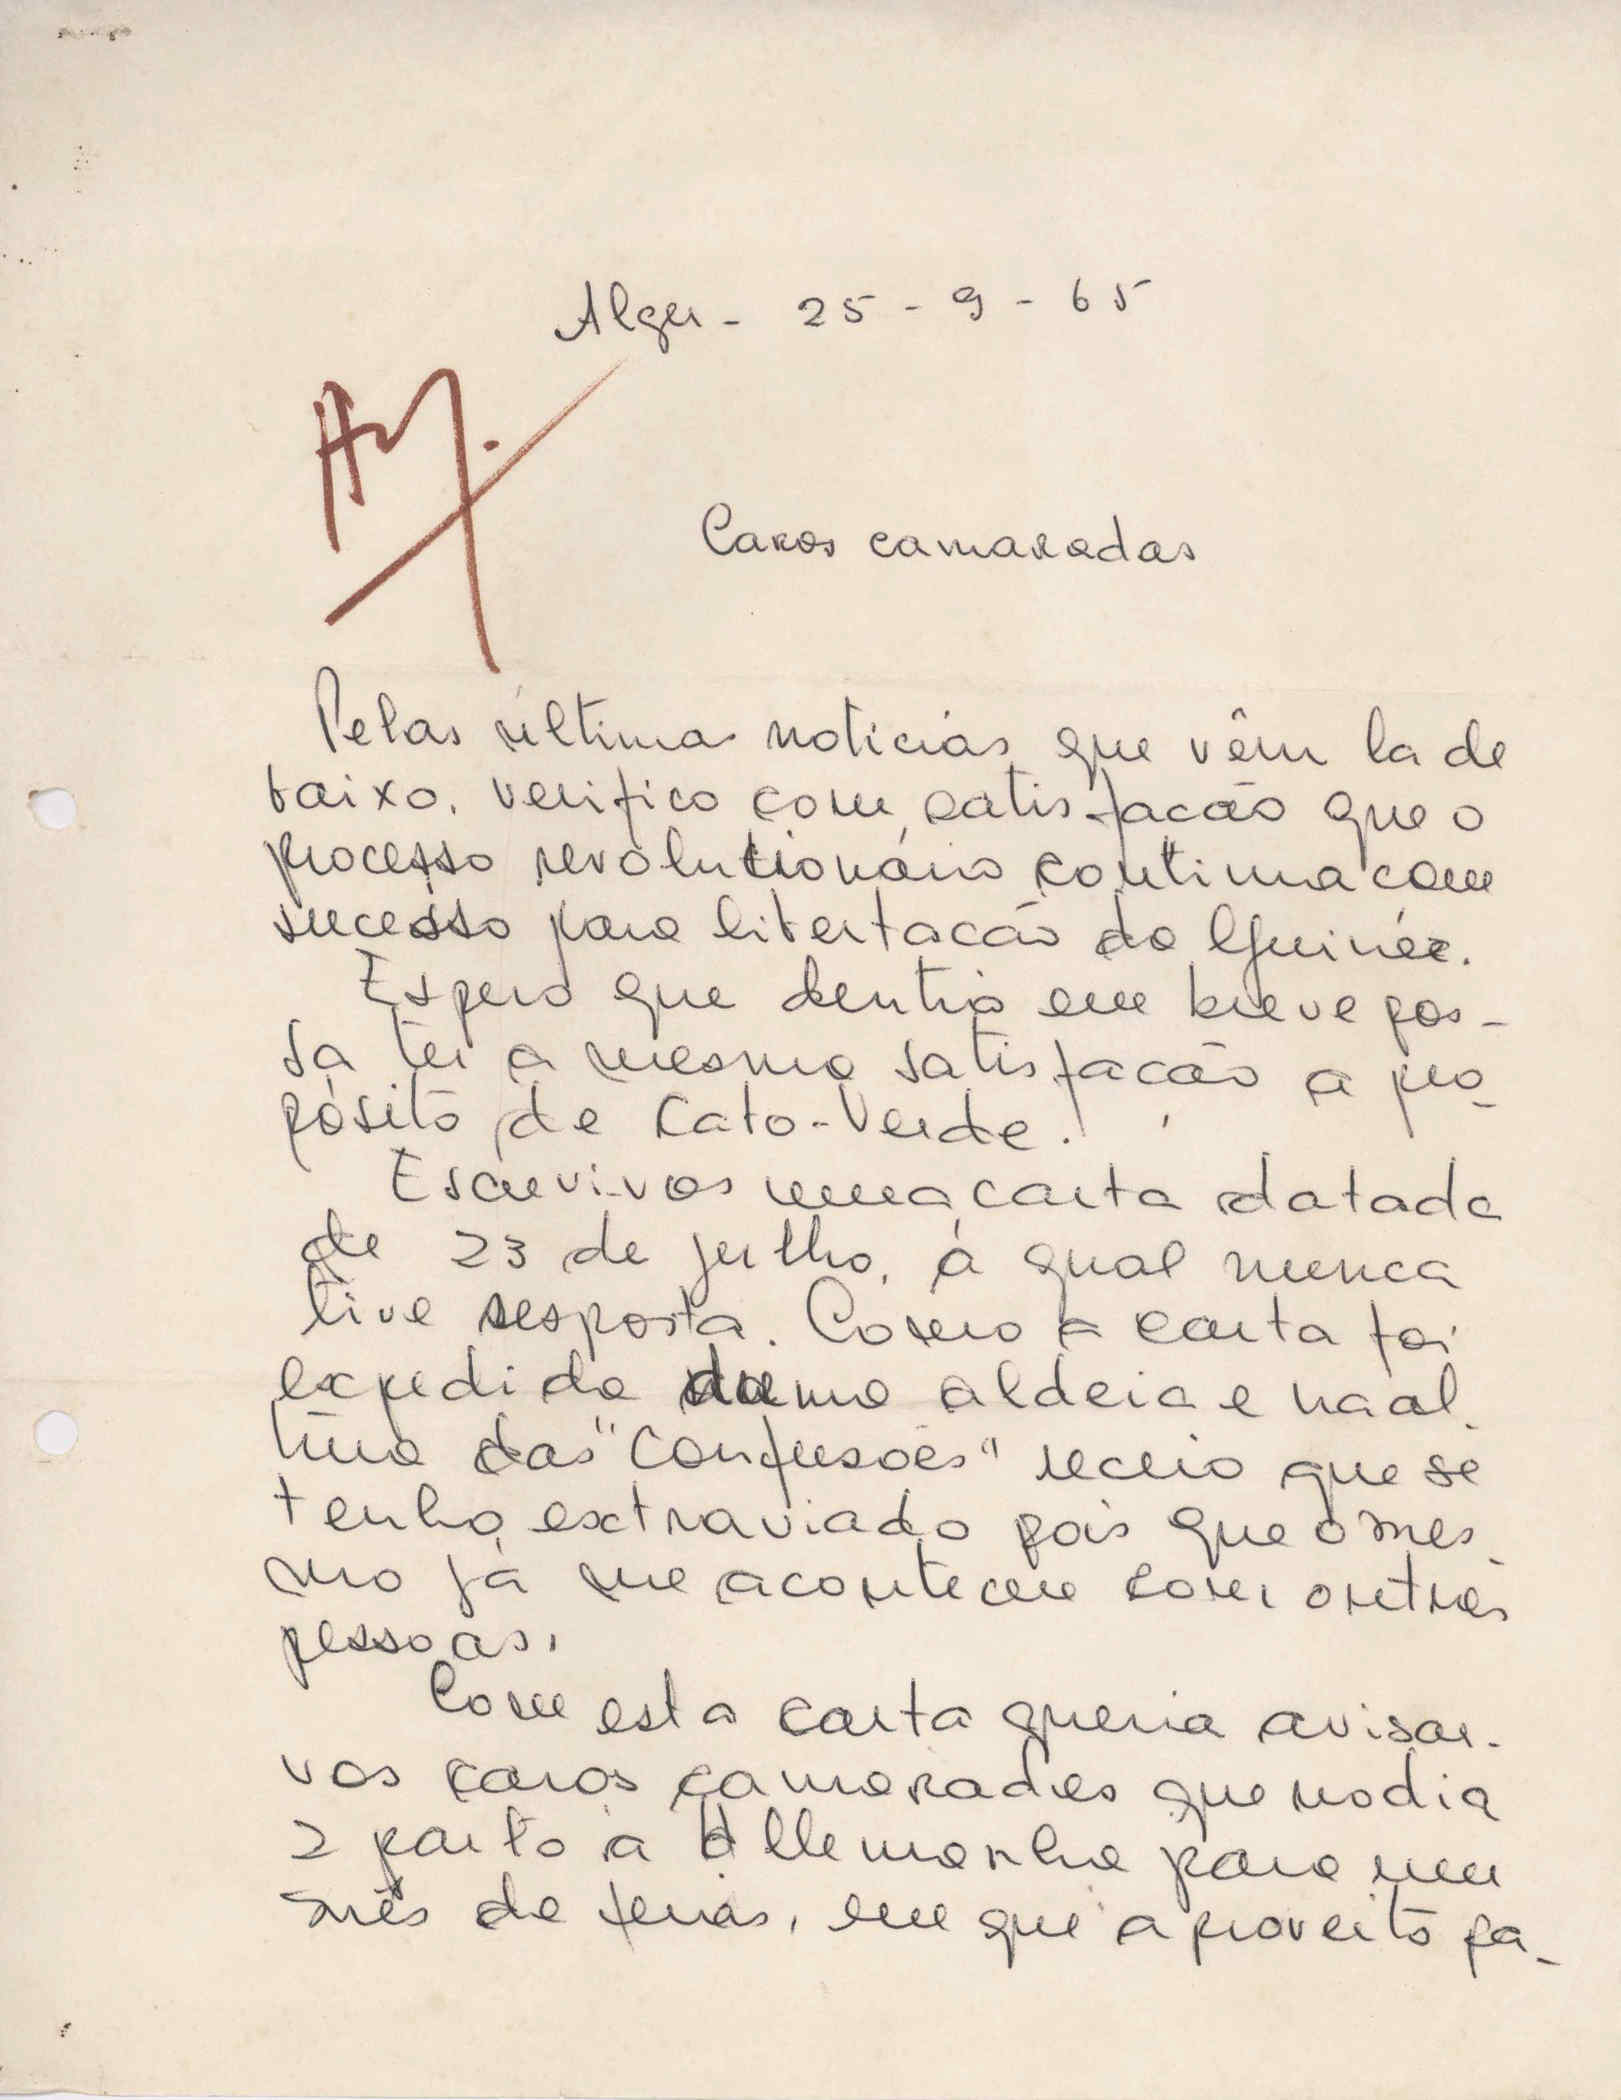 Alger - 25 - 9 - 65
Caros camaradas
Pelas últimas noticias que vêm la de
baixo, verifico com satisfacão que o
processo revolucionário continua com
sucesso para libertacão da Guinée.
Espero que dentro em breve pos-
sa ter a mesma satisfacão a pro-
pósito de Cabo-Verde.
Escrevi-vos uma carta datada
de 23 de julho, á qual nunca
tive resposta. Como a carta foi
expedida duma aldeia e na al-
tura das "Confusoes" receio que se
tenha extraviado pois que o mes-
mo já me aconteceu com outras
pessoas.
Com esta carta queria avisar-
vos caros camarades que no dia
2 parto a Allemanha para um
mês de ferias, em que aproveito pa-